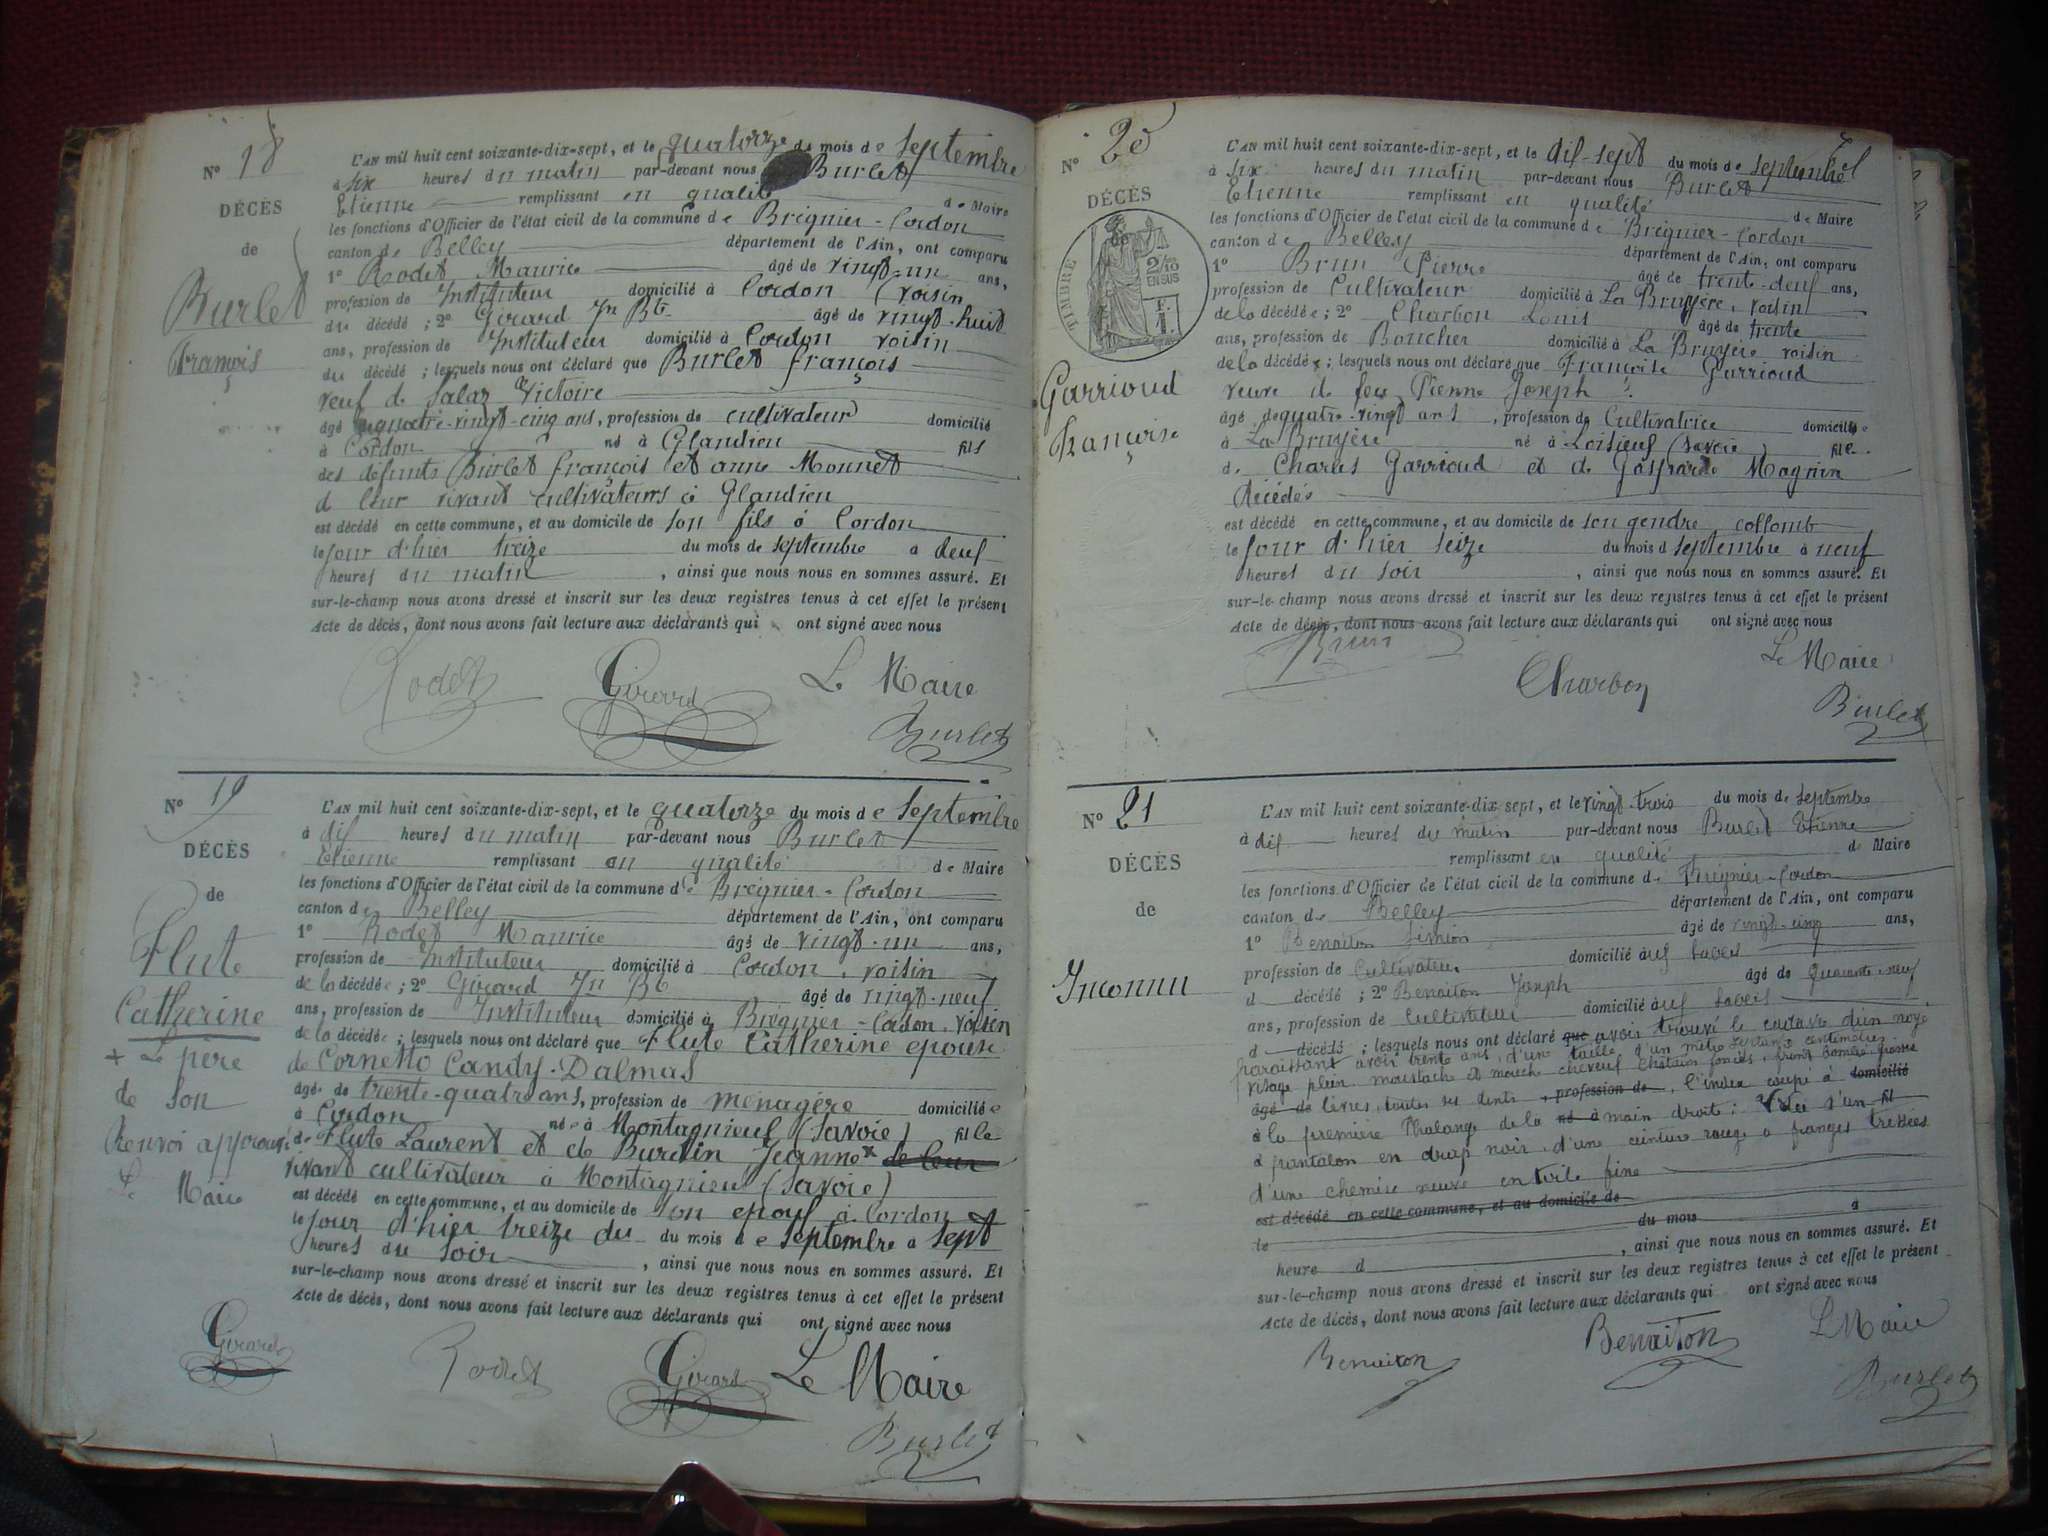 N° 18
DÉCÈS
de
Burlet
François
L'AN mil huit cent soixante-dix-sept, et le quatorze du mois de septembre
à six heures du matin par-devant nous Burlet
Etienne remplissant en qualité de Maire
les fonctions d'Officier de l'état civil de la commune de Bregnier-Cordon
canton de Belley département de l'Ain, ont comparu
1° Rodet Maurice âgé de vingt-un ans,
profession de Instituteur domicilié à Cordon (voisin
du décédé ; 2° Girard Jn Bte âgé de vingt-huit
ans, profession de Instituteur domicilié à Cordon voisin
du décédé ; lesquels nous ont déclaré que Burlet françois
veuf de Salaz Victoire
âgé quatre-vingt-cinq ans, profession de cultivateur domicilié
à Cordon né à Glandieu fils
des défunts Burlet françois et anne Monnet
d leur vivant cultivateurs à Glandieu
est décédé en cette commune, et au domicile de son fils à Cordon
le jour d'hier treize du mois de septembre à neuf
heures du matin , ainsi que nous nous en sommes assuré. Et
sur-le-champ nous avons dressé et inscrit sur les deux registres tenus à cet effet le présent
Acte de décès, dont nous avons fait lecture aux déclarants qui ont signé avec nous
Rodet Girard Le Maire
Burlet
N° 19
DÉCÈS
de
Flute
Catherine
+ Le père
de son
Renvoi approuvé
Le Maire
L'AN mil huit cent soixante-dix-sept, et le quatorze du mois de septembre
à dix heures du matin par-devant nous Burlet
Etienne remplissant en qualité de Maire
les fonctions d'Officier de l'état civil de la commune de Bregnier-Cordon
canton de Belley département de l'Ain, ont comparu
1° Rodet Maurice âgé de vingt-un ans,
profession de Instituteur domicilié à Cordon, voisin
de la décédée ; 2° Girard Jn Bte âgé de vingt-neuf
ans, profession de Instituteur domicilié à Bregnier-Cordon, voisin
de la décédée ; lesquels nous ont déclaré que Flute Catherine epouse
de Cornetto Candy-Dalmas
âgée de trente-quatre ans, profession de ménagère domiciliée
à Cordon née à Montagnieux (Savoie) fille
de Flute Laurent et de Burdin Jeanne x de leur
vivant cultivateur à Montagnieux (Savoie)
est décédé en cette commune, et au domicile de son epoux à Cordon
le jour d'hier treize du du mois de septembre à sept
heures du soir , ainsi que nous nous en sommes assuré. Et
sur-le-champ nous avons dressé et inscrit sur les deux registres tenus à cet effet le présent
Acte de décès, dont nous avons fait lecture aux déclarants qui ont signé avec nous
Girard Rodet Girard Le Maire
Burlet
N° 20
DÉCÈS
de
TIMBRE
2/10
EN SUS
F.
1.
Garrioud
Françoise
L'AN mil huit cent soixante-dix-sept, et le dix-sept du mois de septembre
à six heures du matin par-devant nous Burlet
Etienne remplissant en qualité de Maire
les fonctions d'Officier de l'état civil de la commune de Bregnier-Cordon
canton de Belley département de l'Ain, ont comparu
1° Brun Pierre âgé de trente-deux ans,
profession de Cultivateur domicilié à La Bruyère, voisin
de la décédée ; 2° Charbon Louis âgé de trente
ans, profession de Boucher domicilié à La Bruyère voisin
de la décédée ; lesquels nous ont déclaré que Françoise Garrioud
veuve de feu Pierre Joseph
âgé de quatre-vingt ans , profession de Cultivatrice domiciliée
à La Bruyère né à Loisieux (Savoie) fille
de Charles Garrioud et de Gasparde Magnin
décédés
est décédé en cette commune, et au domicile de son gendre collomb
le jour d'hier seize du mois d septembre à neuf
heures du soir , ainsi que nous nous en sommes assuré. Et
sur-le-champ nous avons dressé et inscrit sur les deux registres tenus à cet effet le présent
Acte de décès, dont nous avons fait lecture aux déclarants qui ont signé avec nous
Brun Charbon Le Maire
Burlet
N° 21
DÉCÈS
de
Inconnu
L'AN mil huit cent soixante-dix sept, et le vingt-trois du mois de septembre
à dix heures du matin par-devant nous Burlet Etienne
remplissant en qualité de Maire
les fonctions d'Officier de l'état civil de la commune de Bregnier-Cordon
canton de Belley département de l'Ain, ont comparu
1° Benaiton Simon âgé de vingt-cinq ans,
profession de Cultivateur domicilié aux Sables
d décédé ; 2° Benaiton Joseph âgé de quarante-neuf
ans, profession de Cultivateur domicilié aux Sables
d décédé ; lesquels nous ont déclaré que avoir trouvé le cadavre d'un noyé
paraissant avoir trente ans, d'une taille d'un mètre septante centimètres
visage plein moustache et mouche cheveux chatain foncés, front bombé grosses
âgé de lèvres, toutes ses dents , profession de , l'index coupé à domicilié
à la première Phalange de la né à main droite ; Vêtu d'un fil
d pantalon en drap noir, d'une ceinture rouge a franges tressées
d'une chemise neuve en toile fine
est décédé en cette commune, et au domicile de
le du mois à
heure d , ainsi que nous nous en sommes assuré. Et
sur-le-champ nous avons dressé et inscrit sur les deux registres tenus à cet effet le présent
Acte de décès, dont nous avons fait lecture aux déclarants qui ont signé avec nous
Benaiton Benaiton Le Maire
Burlet